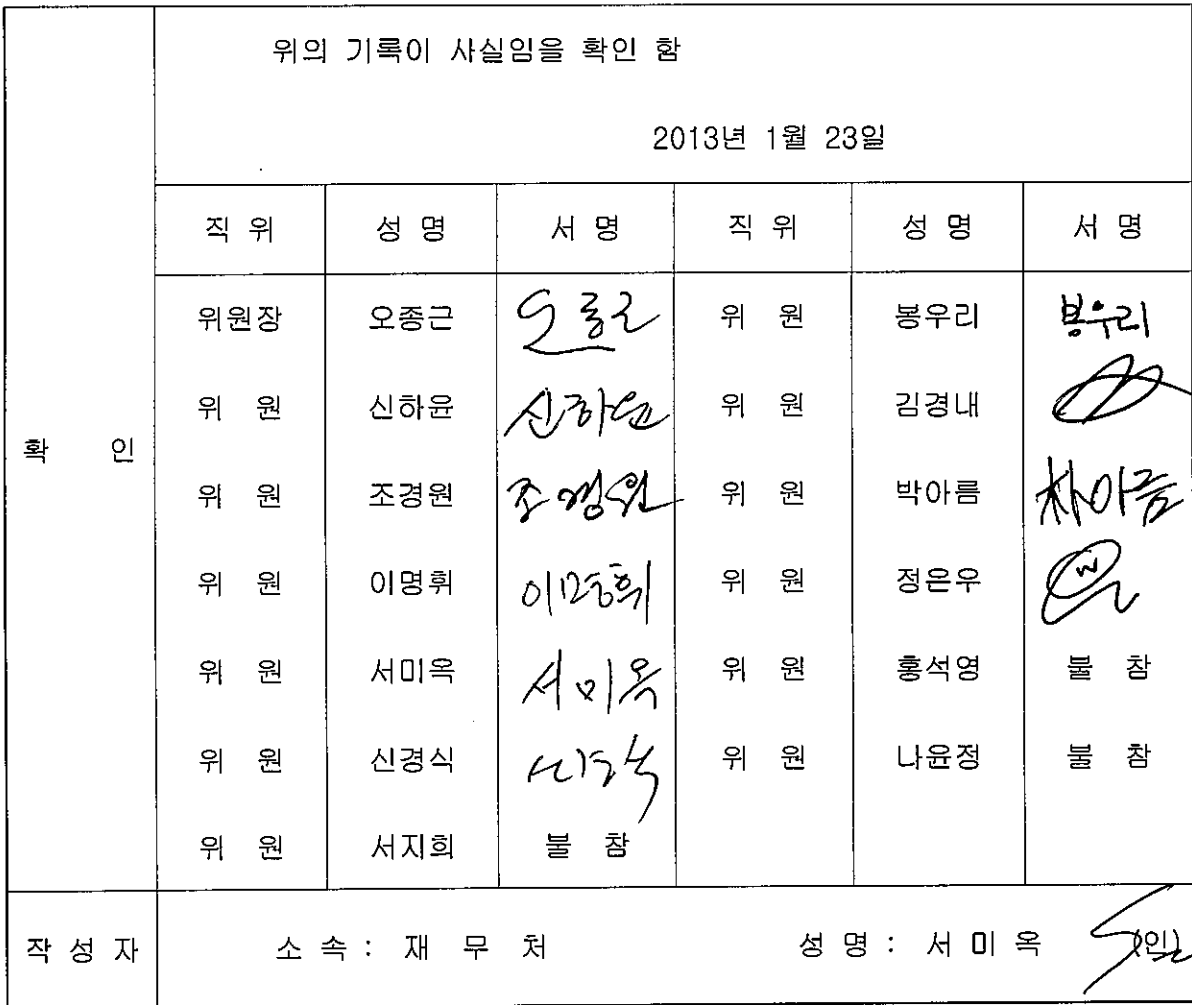 위의 기록이 사실임을 확인 함
2013년 1월 23일
직 위 성 명 서 명 직 위 성 명 서 명
위원장 오종근 오종근 위 원 봉우리 봉우리
위 원 신하윤 신하윤 위 원 김경내
확 인
위 원 조경원 조경원 위 원 박아름 朴아름
위 원 이명휘 이명휘 위 원 정은우
위 원 서미옥 서미옥 위 원 홍석영 불 참
위 원 신경식 신경식 위 원 나윤정 불 참
위 원 서지희 불 참
작 성 자 소 속 : 재 무 처 성 명 : 서 미 옥 (인)